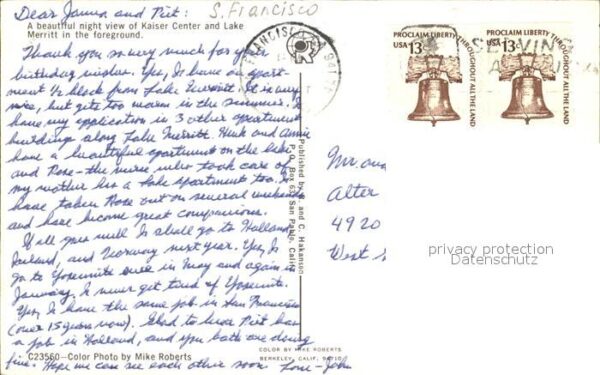 Dear Janna and Piet:
S. Francisco
A beautiful night view of Kaiser Center and Lake
Merritt in the foreground.
Thank you so very much for your
birthday wishes. Yes, I have an apart-
ment ½ block from Lake Merritt. It is very
nice, but gets too warm in the summer. I
have my application in 3 other apartment
buildings along Lake Merritt. Henk and Annie
have a beautiful apartment on the lake
and Rose - the nurse who took care of
my mother has a lake apartment too. I
have taken Rose out on several weekends
and have become great companions.
If all goes well I shall go to Holland,
Iceland, and Norway next year. Yes, I
go to Yosemite once in May and again in
January, I never get tired of Yosemite.
Yes, I have the same job in San Francisco
(over 15 years now). Glad to hear Piet has
a job in Holland, and you both are doing
fine. Hope we can see each other soon. Love - John
C23560—Color Photo by Mike Roberts
Published by W. and C. Hakanson
P.O. Box 63 San Pablo, Calif.
COLOR BY MIKE ROBERTS
BERKELEY, CALIF. 94710
PROCLAIM LIBERTY THROUGHOUT ALL THE LAND
USA 13c
PROCLAIM LIBERTY THROUGHOUT ALL THE LAND
USA 13c
Mr and
Alter
4920
West
privacy protection
Datenschutz